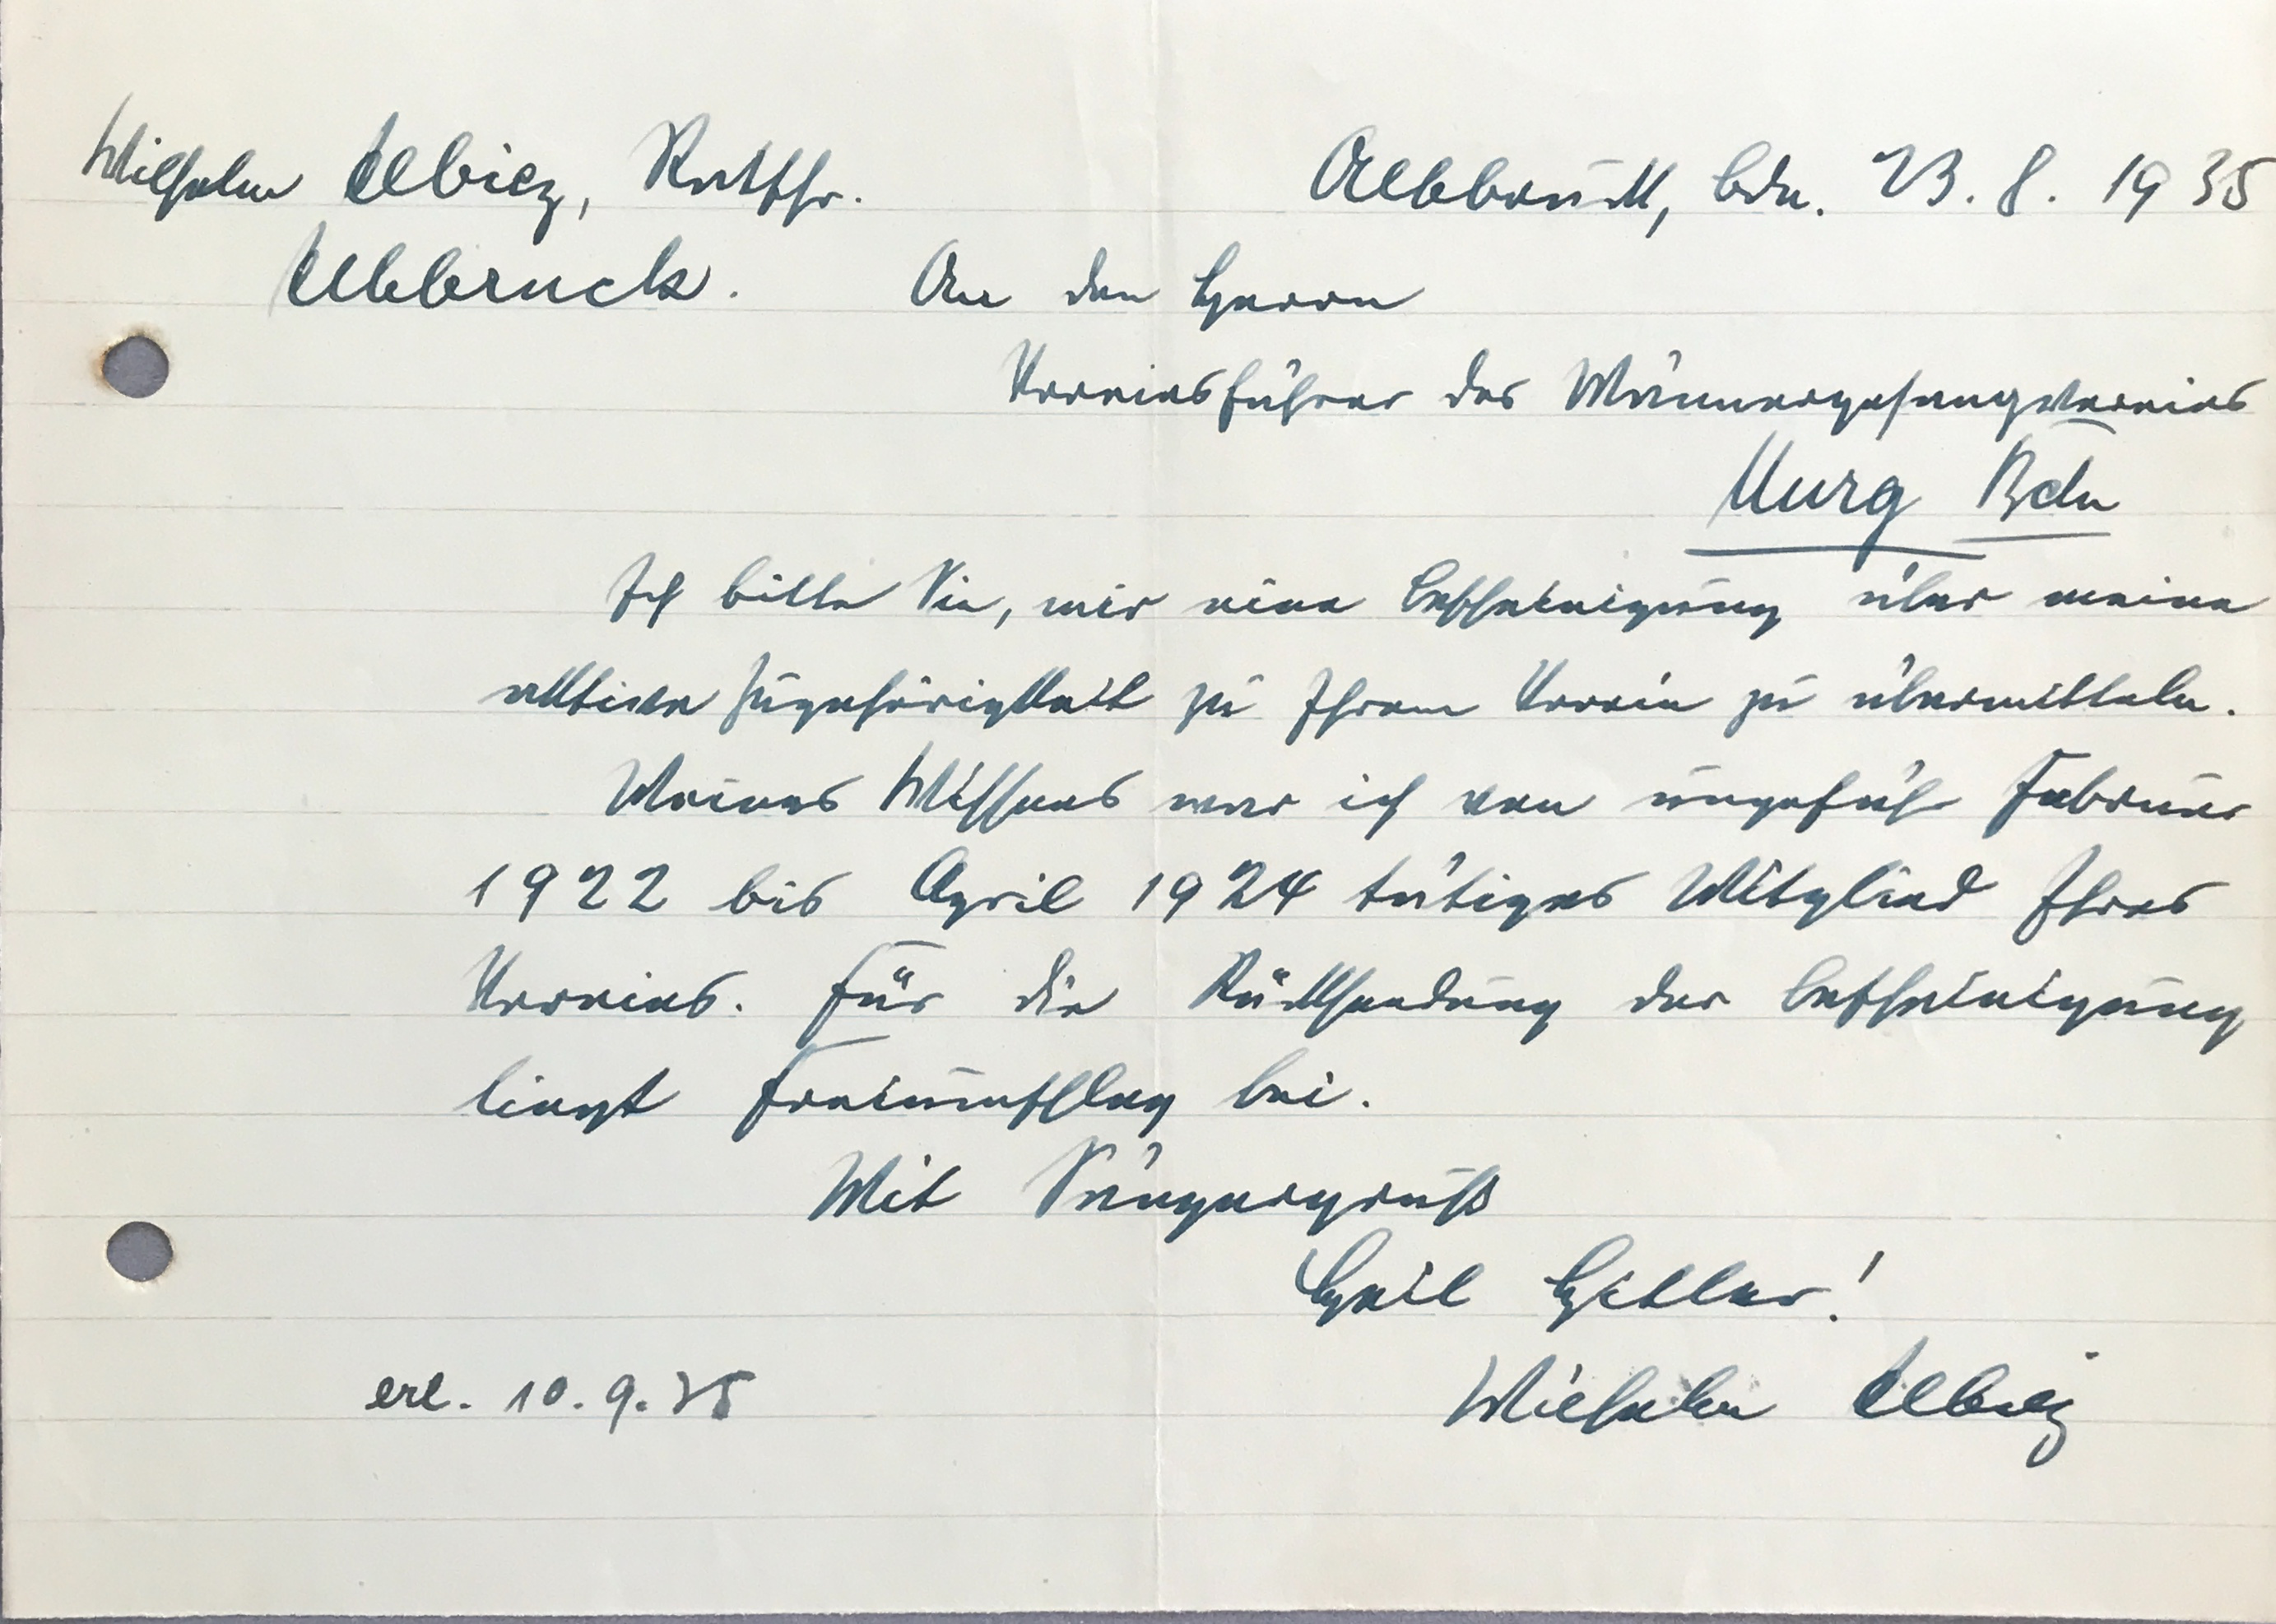 Wilhelm Albiez, Ratschr. Albbruck, Bdn. 23. 8. 1935
Albbruck. An den Herrn
Vereinsführer des Männergesangvereins
Murg Bdn
Ich bitte Sie, mir eine Bescheinigung über meine
aktive Zugehörigkeit zu Ihrem Verein zu übermitteln.
Meines Wissens war ich von ungefähr Februar
1922 bis April 1924 tätiges Mitglied Ihres
Vereins. Für die Rücksendung der Bescheinigung
liegt Freiumschlag bei.
Mit Sängergruß
Heil Hitler!
erl. 10. 9. 35 Wilhelm Albiez